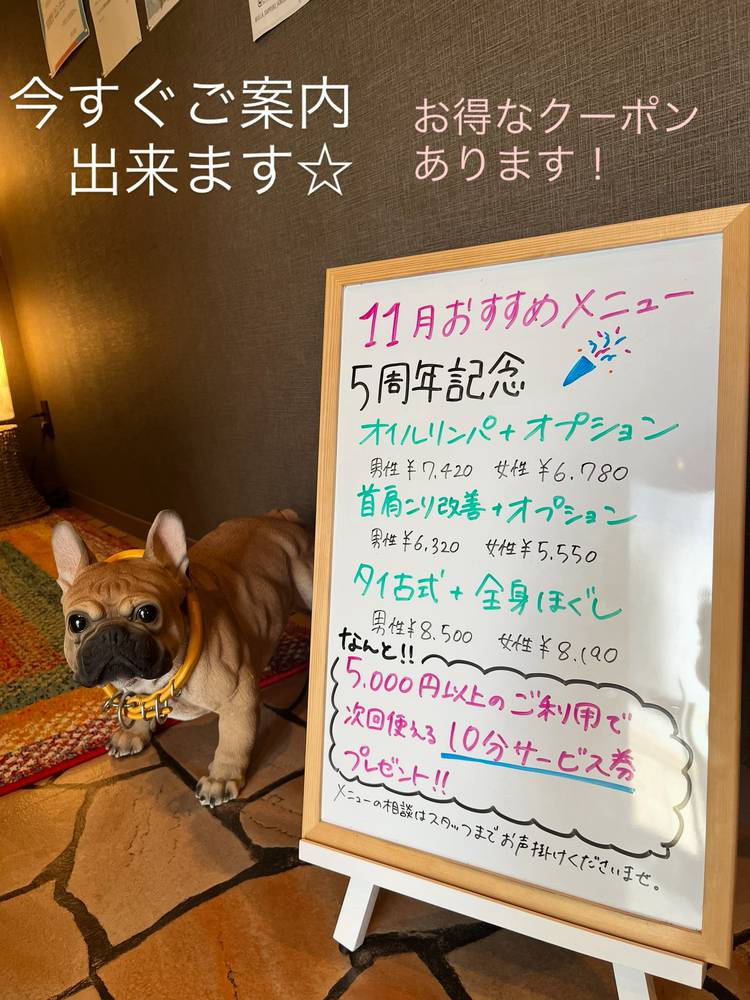 今すぐご案内
出来ます☆
お得なクーポン
あります！
11月おすすめメニュー
5周年記念
オイルリンパ+オプション
男性¥7,420 女性¥6,780
首肩こり改善+オプション
男性¥6,320 女性¥5,550
タイ古式+全身ほぐし
男性¥8,500 女性¥8,190
なんと!!
5,000円以上のご利用で
次回使える10分サービス券
プレゼント!!
メニューの相談はスタッフまでお声掛けくださいませ。